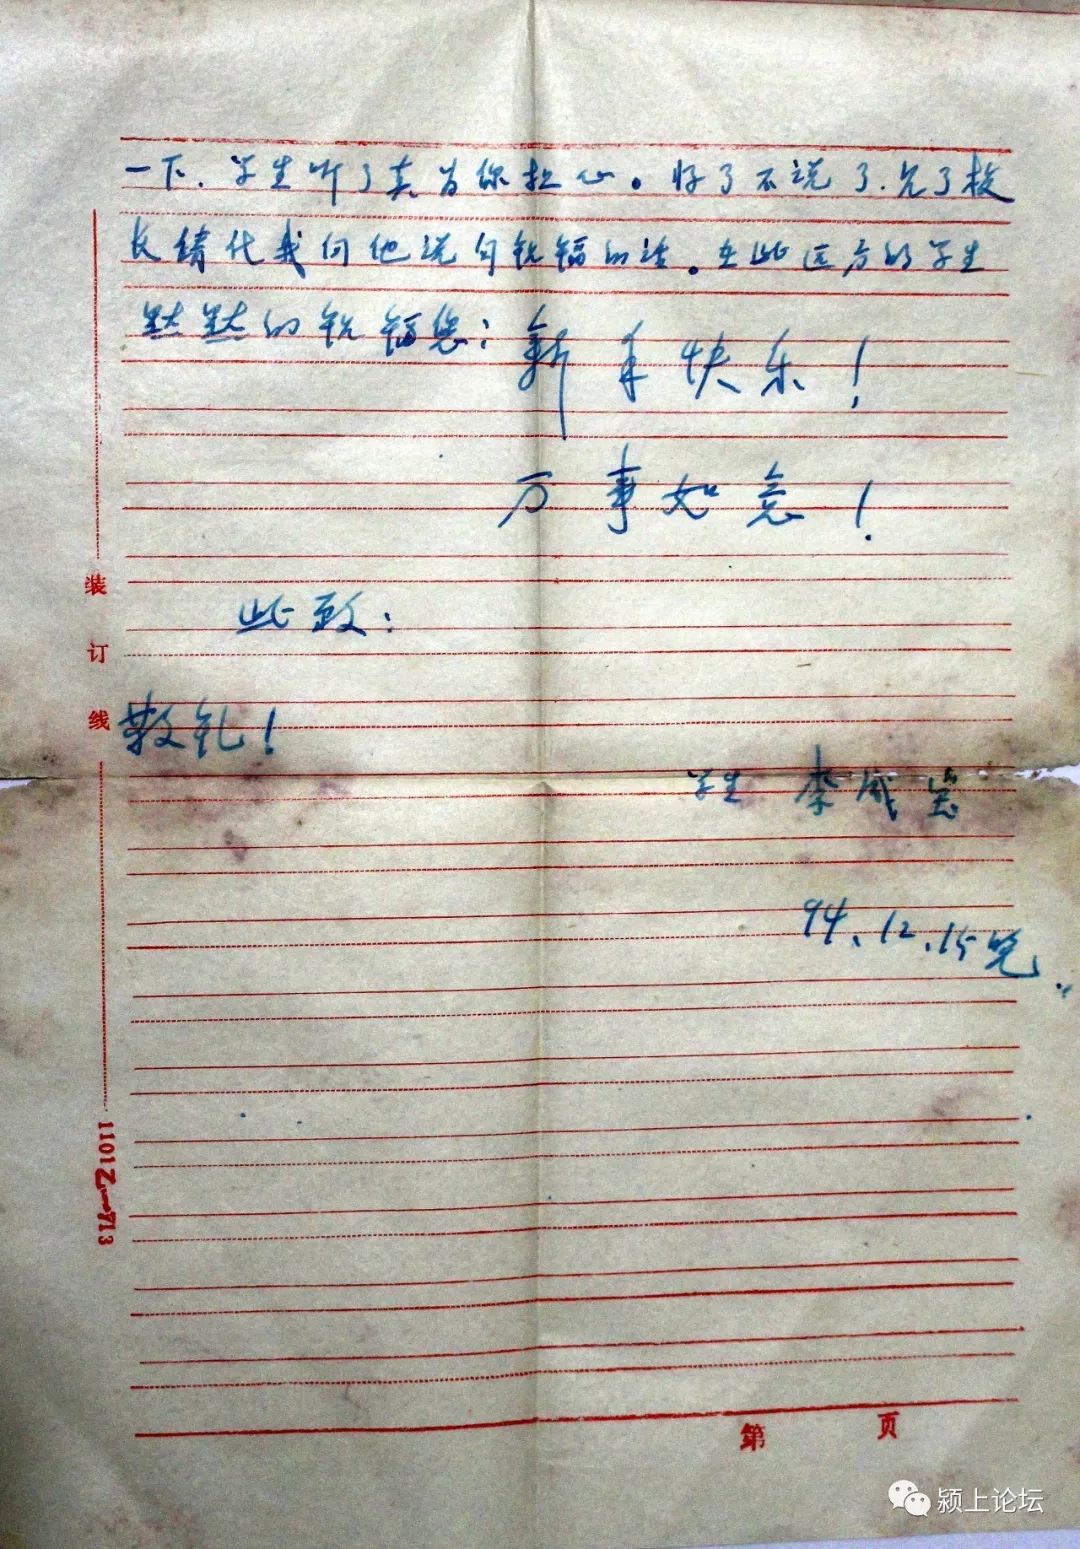 一下.学生听了真为你担心。好了不说了.见了校
长请代我向他说句祝福的话。在此远方的学生
默默的祝福您:
新年快乐!
万事如意!
装
订
线
此致:
敬礼!
学生 李成
94.12.15晚
第 页
颍上论坛